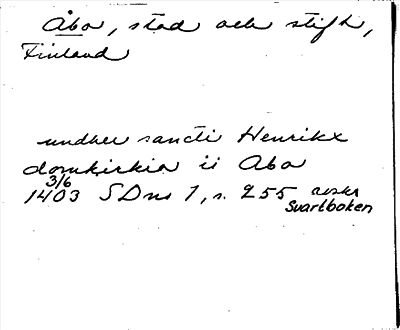 Åbo, stad och stift,
Finland
undher sancti Henrikx
domkirkia ii Abo
3/6
1403 SDns 1, s. 255 avskr
Svartboken